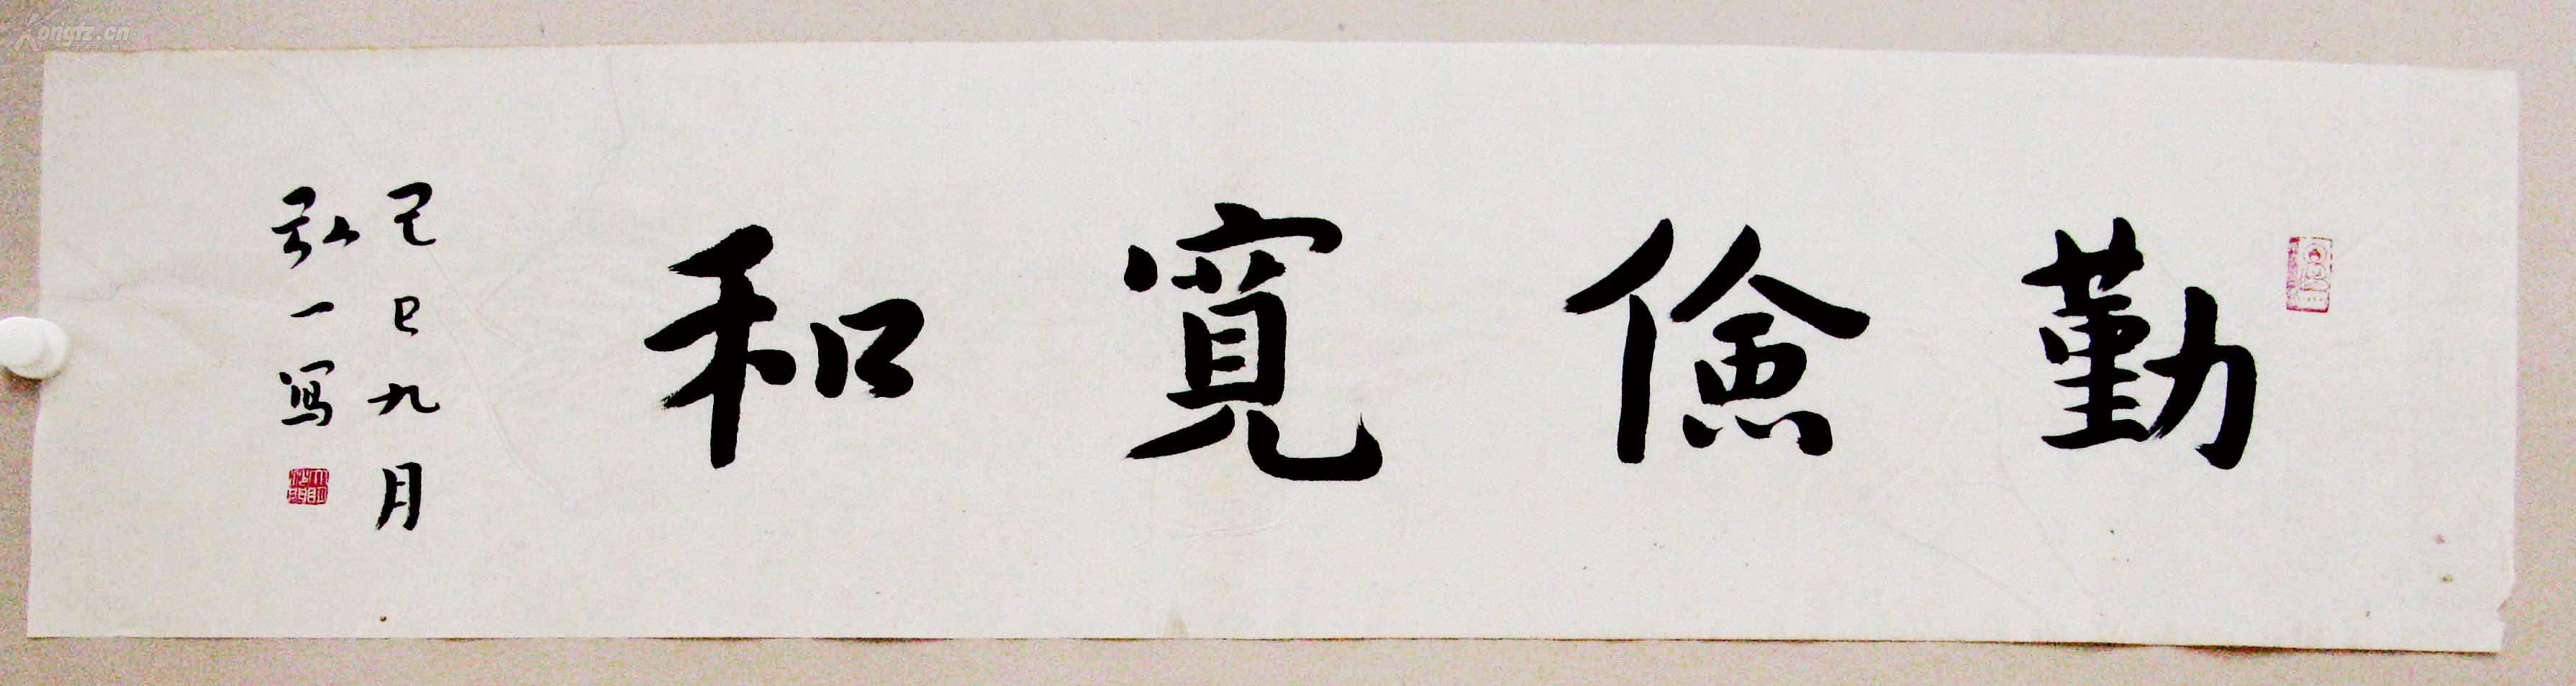 勤儉寬和
己巳九月
弘一写
Kongfz.cn